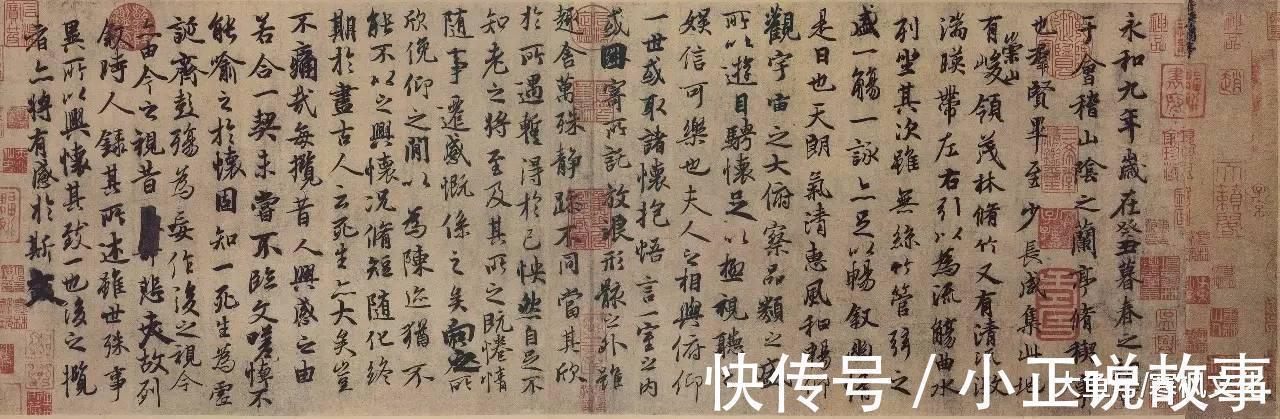 永和九年歲在癸丑暮春之
于會稽山陰之蘭亭脩稧事
也羣賢畢至少長咸集此地
有崇山峻領茂林脩竹又有清流激
湍暎帶左右引以為流觴曲水
列坐其次雖無絲竹管弦之
盛一觴一詠亦足以暢叙幽
是日也天朗氣清惠風和暢仰
觀宇宙之大俯察品類之盛
所以遊目騁懷足以極視聽
娛信可樂也夫人之相與俯仰
一世或取諸懷抱悟言一室之內
或因寄所託放浪形骸之外雖
趣舍萬殊静躁不同當其欣
於所遇暫得於己怏然自足不
知老之將至及其所之既惓情
随事遷感慨係之矣向之所
欣俛仰之閒以為陳迹猶不
能不以之興懷況脩短随化終
期於盡古人云死生亦大矣豈
不痛哉每攬昔人興感之由
若合一契未嘗不臨文嗟悼不
能喻之於懷固知一死生為虛
誕齊彭殤為妄作後之視今
亦由今之視昔悲夫故列
叙時人錄其所述雖世殊事
異所以興懷其致一也後之攬
者亦將有感於斯文
快传号/小正说故事